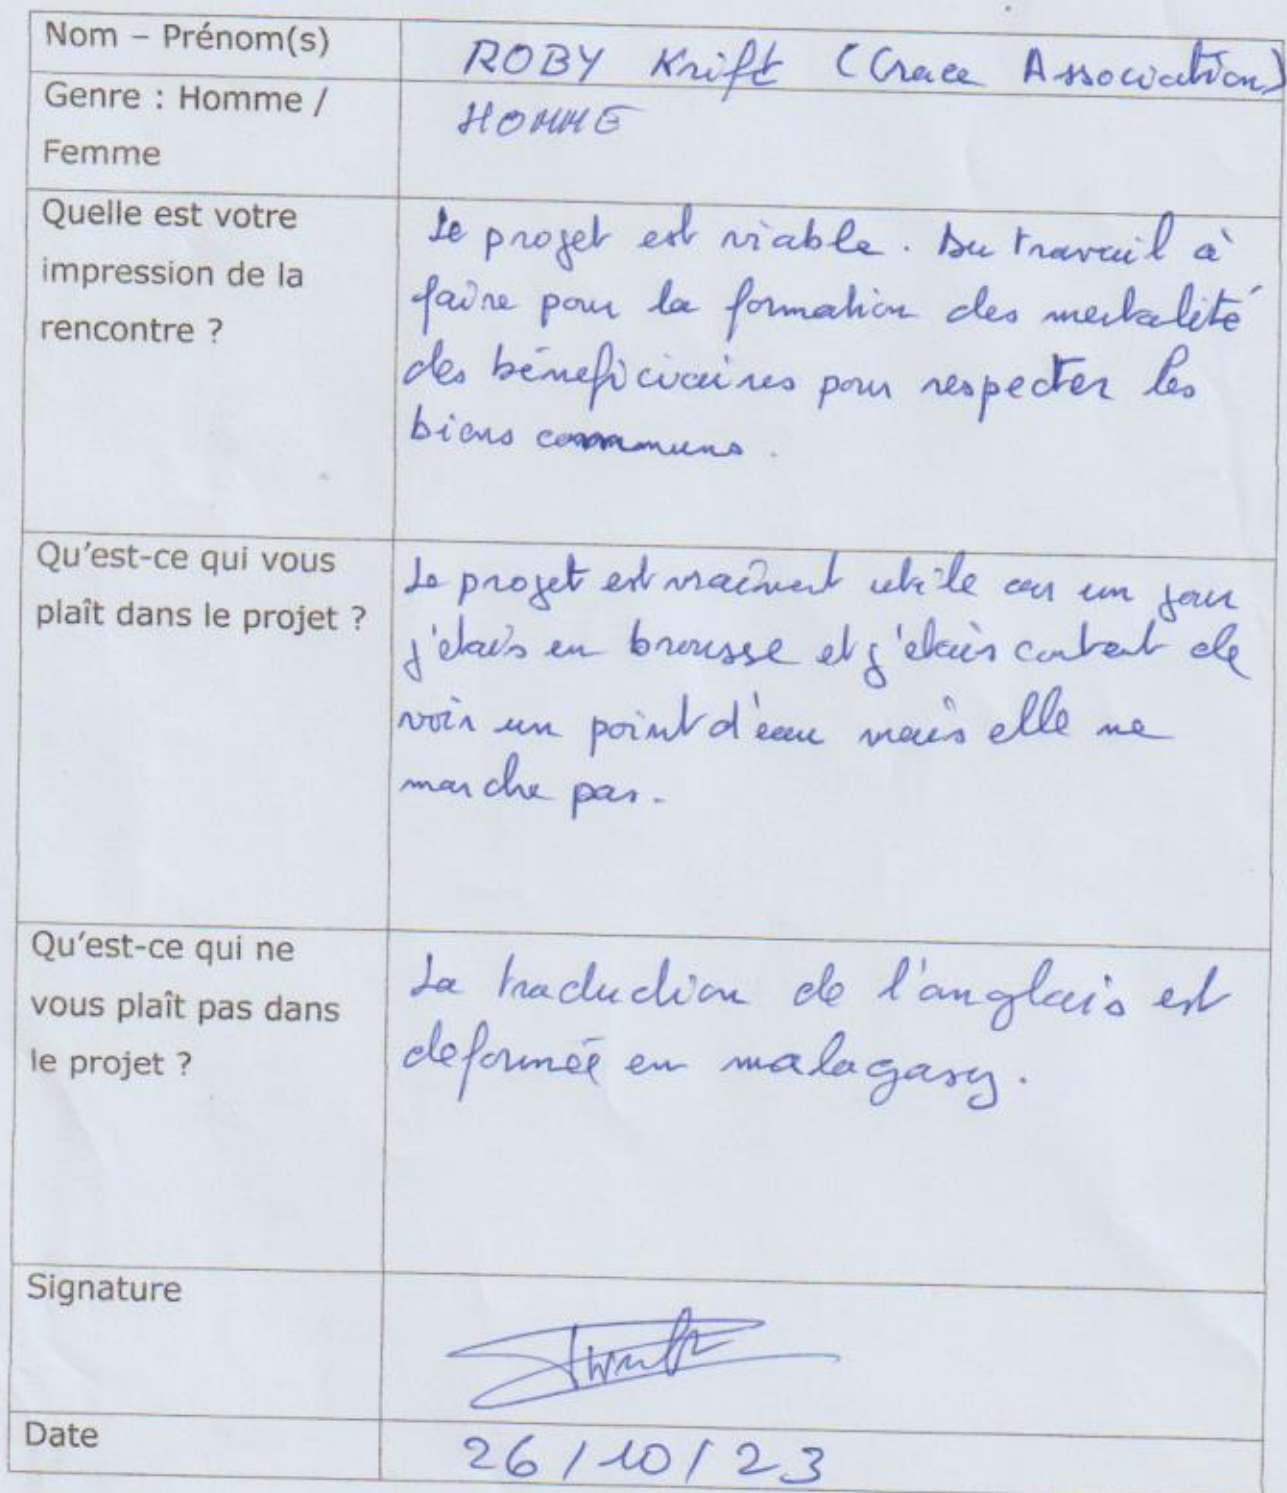 Nom – Prénom(s)
ROBY Krift (Grace Association)
Genre : Homme /
Femme
HOMME
Quelle est votre
impression de la
rencontre ?
Le projet est viable. Du travail à
faire pour la formation des mentalité
des béneficiaires pour respecter les
biens communs.
Qu'est-ce qui vous
plaît dans le projet ?
Le projet est vraiment utile car un jour
j'étais en brousse et j'étais content de
voir un point d'eau mais elle ne
marche pas.
Qu'est-ce qui ne
vous plaît pas dans
le projet ?
La traduction de l'anglais est
deformée en malagasy.
Signature
Date
26/10/23